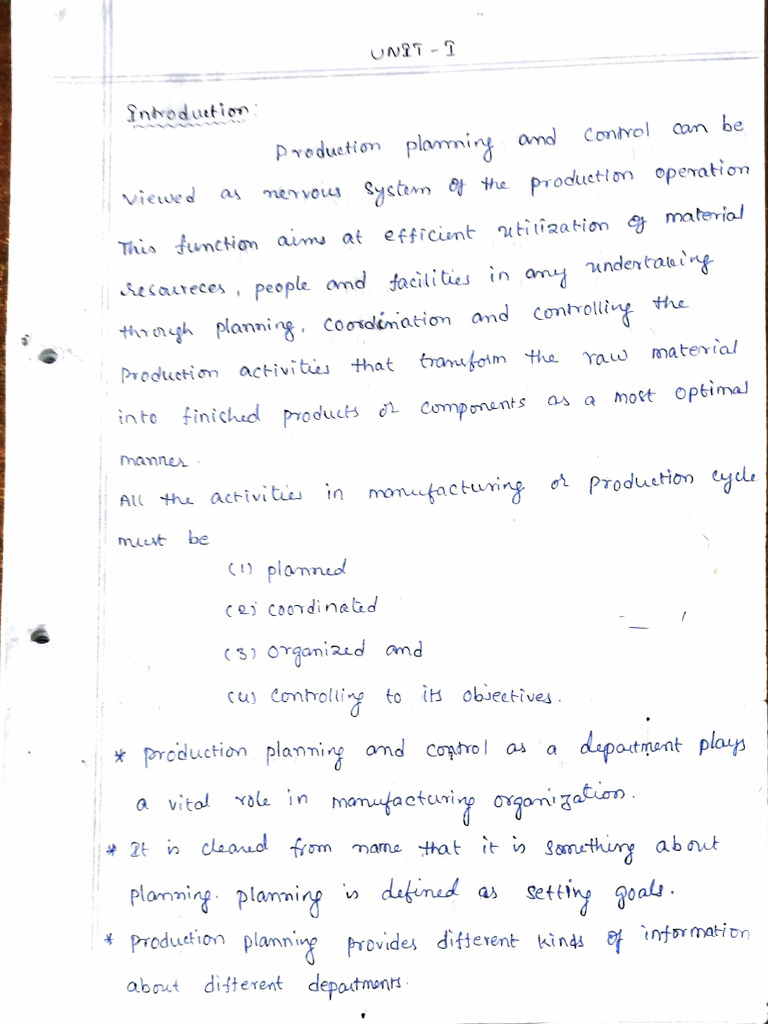 UNIT - I
Introduction:
Production planning and control can be
viewed as nervous system of the production operation
This function aims at efficient utilization of material
resources, people and facilities in any undertaking
through planning, coordination and controlling the
Production activities that transform the raw material
into finished products or components as a most optimal
manner.
All the activities in manufacturing or production cycle
must be
(1) planned
(2) coordinated
(3) organized and
(4) controlling to its objectives.
* production planning and control as a department plays
a vital role in manufacturing organization.
* It is cleared from name that it is something about
planning. planning is defined as setting goals.
* production planning provides different kinds of information
about different departments.